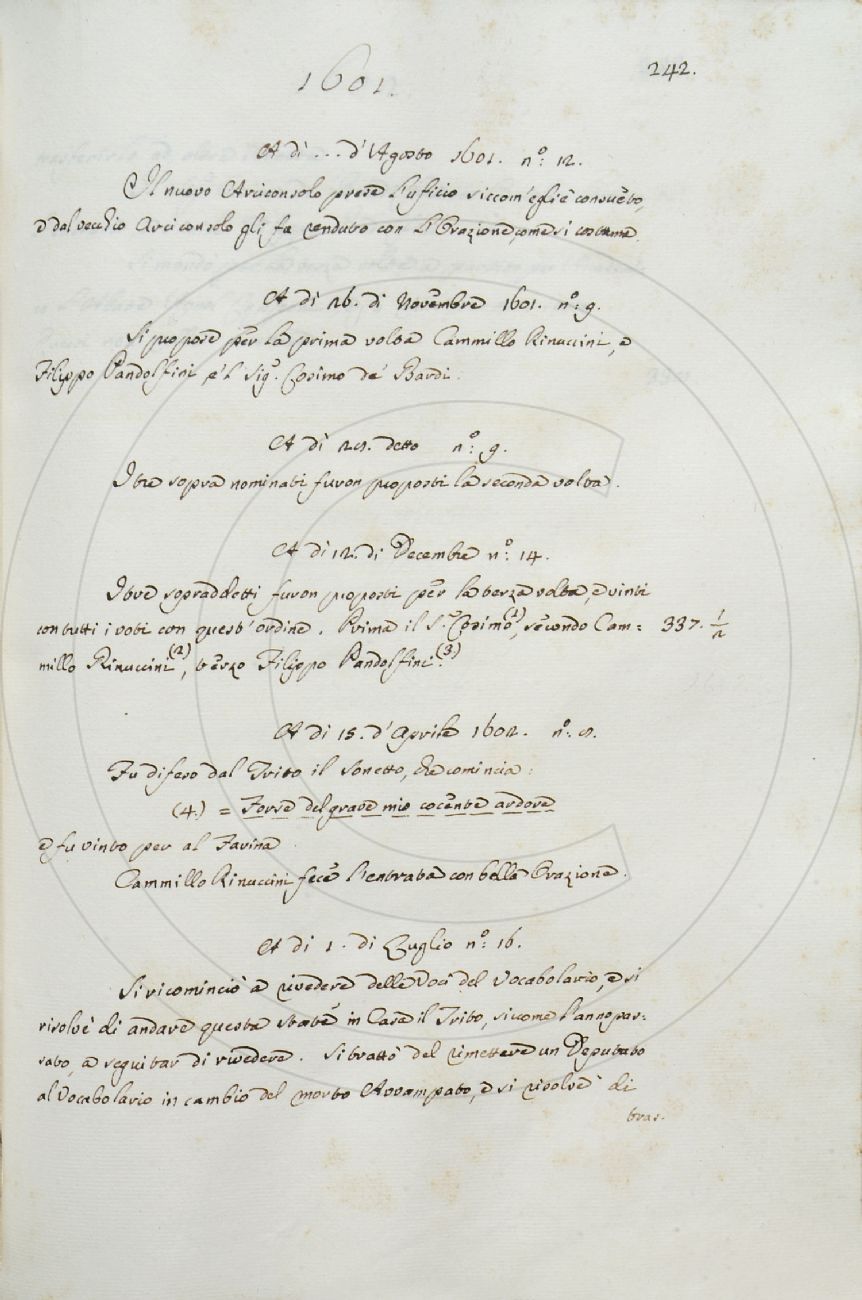 1601.
242.
A dì ... d'Agosto 1601. nº: 12.
Il nuovo Arciconsolo prese l'uficio siccom'egli è consueto,
e dal vecchio Arciconsolo gli fu renduto con l'Orazione, come si costuma.
A dì 26. di Novembre 1601. nº: 9.
Si propose per la prima volta Cammillo Rinuccini, e
Filippo Pandolfini, e 'l Sigr. Cosimo de' Bardi.
A dì 29. detto nº: 9.
I tre sopra nominati furon proposti la seconda volta.
A dì 12. di Decembre nº: 14.
I tre sopraddetti furon proposti per la terza volta, e vinti
con tutti i voti con quest'ordine. Prima il S.r Cosimo (1), secondo Cam= 337. 1/2
millo Rinuccini (2), terzo Filippo Pandolfini. (3)
A dì 15. d'Aprile 1602. nº: 9.
Fu difeso dal Trito il Sonetto, che comincia:
(4.) = Forse del grave mio cocente ardore
e fu vinto per al Farina.
Cammillo Rinuccini fece l'entrata con bella Orazione.
A dì 1. di Luglio nº: 16.
Si ricominciò a rivedere delle Voci del Vocabolario, e si
risolvè di andare questa state in Casa il Trito, siccome l'anno pas=
sato, a seguitar di rivedere. Si trattò del rimettere un Deputato
al Vocabolario in cambio del morto Avvampato, e si risolvè di
tras=